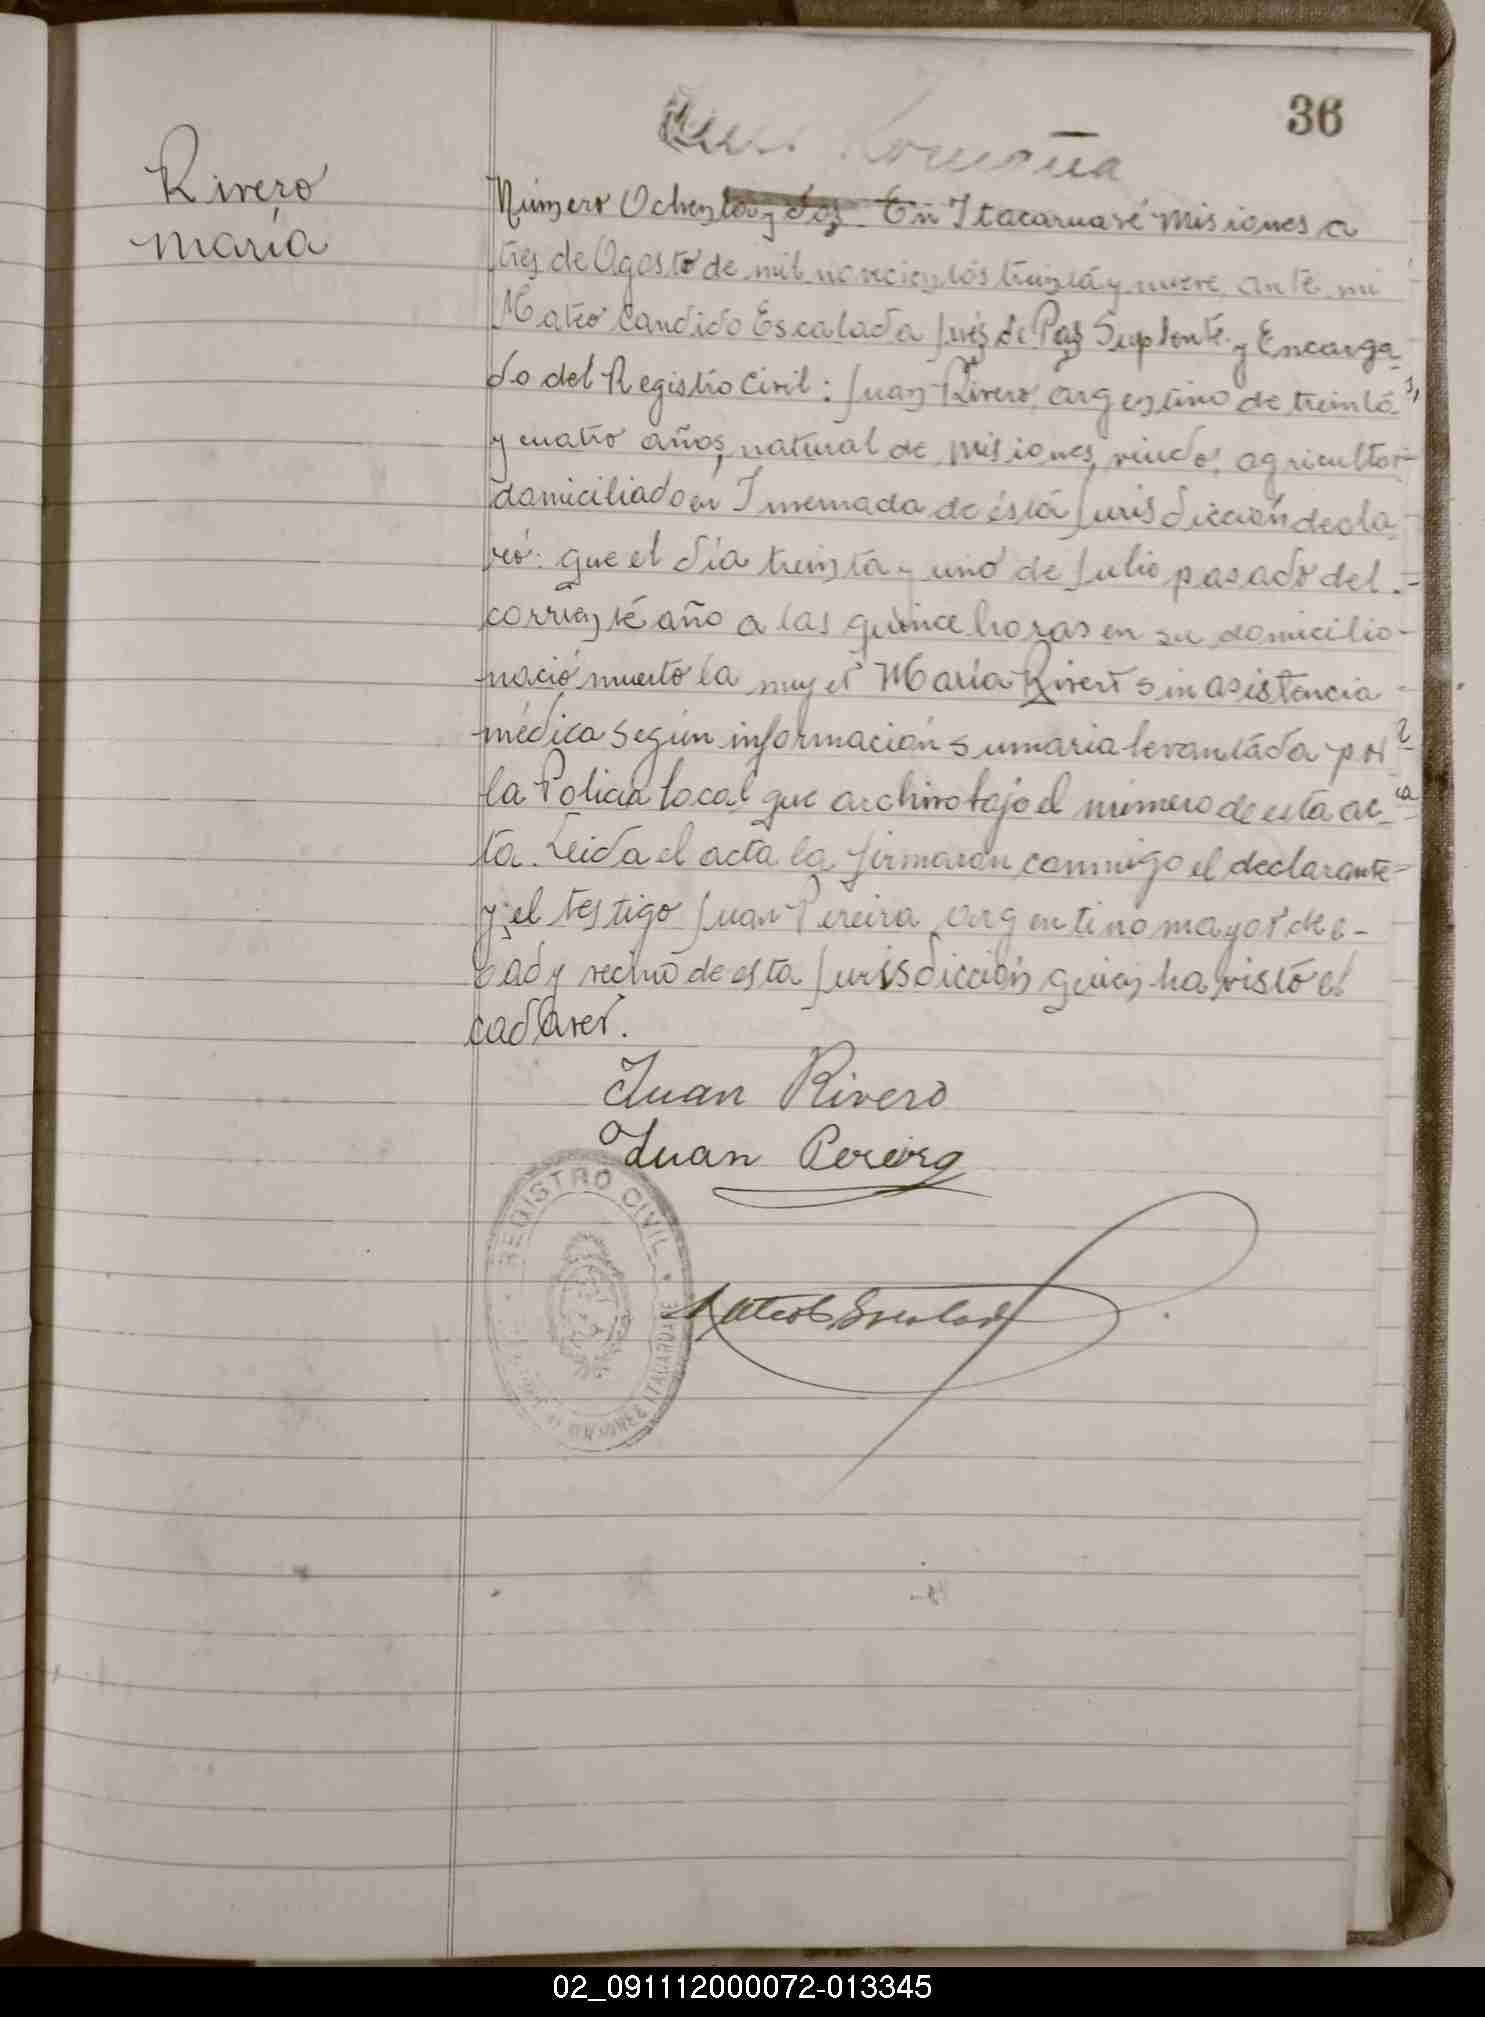 36
Rivero
María
Número Ochenta y dos. En Itacaruaré Misiones a
tres de Agosto de mil novecientos treinta y nueve, ante mi
Mateo Candido Escalada Jués de Paz Suplente y Encarga
do del Registro Civil: Juan Rivero, argentino de treinta
y cuatro años, natural de Misiones, viudo, agricultor
domiciliado en Invernada de ésta Jurisdicción decla
ró: que el día treinta y uno de Julio pasado del
corriente año a las quince horas en su domicilio
nació muerto la mujer María Rivero sin asistencia
médica según información sumaria levantada por
la Policia local que archivo bajo el número de esta ac
ta. Leida el acta la firmaron conmigo el declarante
y el testigo Juan Pereira, argentino mayor de e-
dad y vecino de esta Jurisdicción quien ha visto el
cadaver.
Juan Rivero
Juan Pereira
REGISTRO CIVIL
02_091112000072-013345